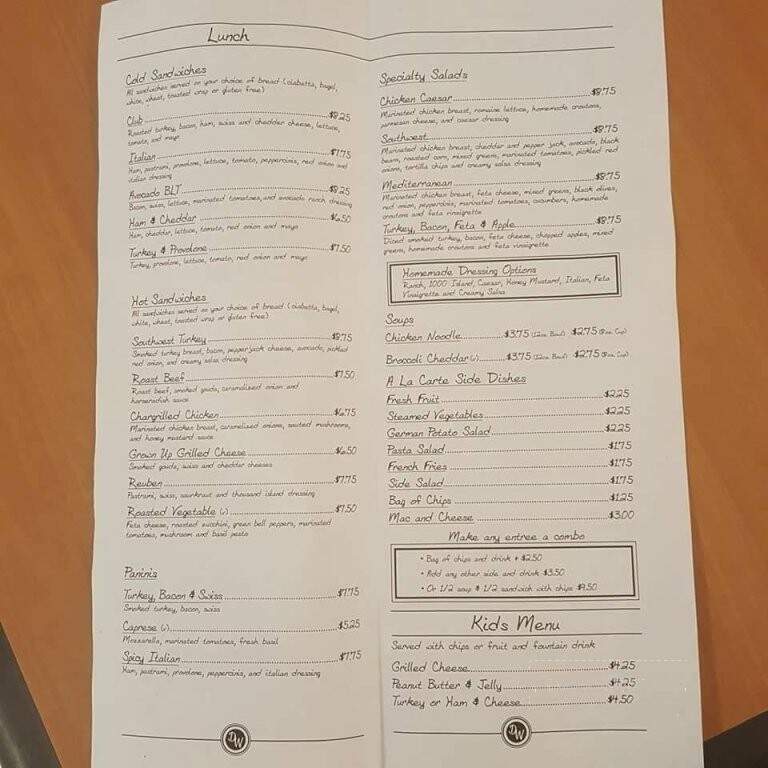 Lunch
Cold Sandwiches
All sandwiches served on your choice of bread (ciabatta, bagel,
white, wheat, toasted wrap or gluten free)
Club $8.25
Roasted turkey, bacon, ham, swiss and chedder cheese, lettuce,
tomato, and mayo
Italian $7.75
Ham, pastrami, provolone, lettuce, tomato, pepperoncinis, red onion and
italian dressing
Avocado BLT $8.25
Bacon, swiss, lettuce, marinated tomatoes, and avocado ranch dressing
Ham & Cheddar $6.50
Ham, cheddar, lettuce, tomato, red onion and mayo
Turkey & Provolone $7.50
Turkey, provolone, lettuce, tomato, red onion and mayo
Hot Sandwiches
All sandwiches served on your choice of bread (ciabatta, bagel,
white, wheat, toasted wrap or gluten free)
Southwest Turkey $8.75
Smoked turkey breast, bacon, pepperjack cheese, avocado, pickled
red onion, and creamy salsa dressing
Roast Beef $7.50
Roast beef, smoked gouda, caramelized onion and
horseradish sauce
Chargrilled Chicken $6.75
Marinated chicken breast, caramelized onions, sauted mushrooms,
and honey mustard sauce
Grown Up Grilled Cheese $6.50
Smoked gouda, swiss and cheddar cheeses
Reuben $7.75
Pastrami, swiss, saurkraut and thousand island dressing
Roasted Vegetable (v) $7.50
Feta cheese, roasted zucchini, green bell peppers, marinated
tomatoes, mushroom and basil pesto
Paninis
Turkey, Bacon & Swiss $7.75
Smoked turkey, bacon, swiss
Caprese (v) $5.25
Mozzarella, marinated tomatoes, fresh basil
Spicy Italian $7.75
Ham, pastrami, provolone, pepperoncinis, and italian dressing
DW
Specialty Salads
Chicken Caesar $8.75
Marinated chicken breast, romaine lettuce, homemade croutons,
parmesan cheese, and caesar dressing
Southwest $8.75
Marinated chicken breast, cheddar and pepper jack, avocado, black
bean, roasted corn, mixed greens, marinated tomatoes, pickled red
onions, tortilla chips and creamy salsa dressing
Mediterranean $8.75
Marinated chicken breast, feta cheese, mixed greens, black olives,
red onion, pepperoncinis, marinated tomatoes, cucumbers, homemade
croutons and feta vinaigrette
Turkey, Bacon, Feta & Apple $8.75
Diced smoked turkey, bacon, feta cheese, chopped apples, mixed
greens, homemade croutons and feta vinaigrette
Homemade Dressing Options
Ranch, 1000 Island, Caesar, Honey Mustard, Italian, Feta
Vinaigrette and Creamy Salsa
Soups
Chicken Noodle $3.75 (12oz Bowl) $2.75 (8oz Cup)
Broccoli Cheddar(v) $3.75 (12oz Bowl) $2.75 (8oz Cup)
A La Carte Side Dishes
Fresh Fruit $2.25
Steamed Vegetables $2.25
German Potato Salad $2.25
Pasta Salad $1.75
French Fries $1.75
Side Salad $1.75
Bag of Chips $1.25
Mac and Cheese $3.00
Make any entree a combo
• Bag of chips and drink + $2.50
• Add any other side and drink $3.50
• Or 1/2 soup & 1/2 sandwich with chips $9.50
Kids Menu
Served with chips or fruit and fountain drink
Grilled Cheese $4.25
Peanut Butter & Jelly $4.25
Turkey or Ham & Cheese $4.50
DW